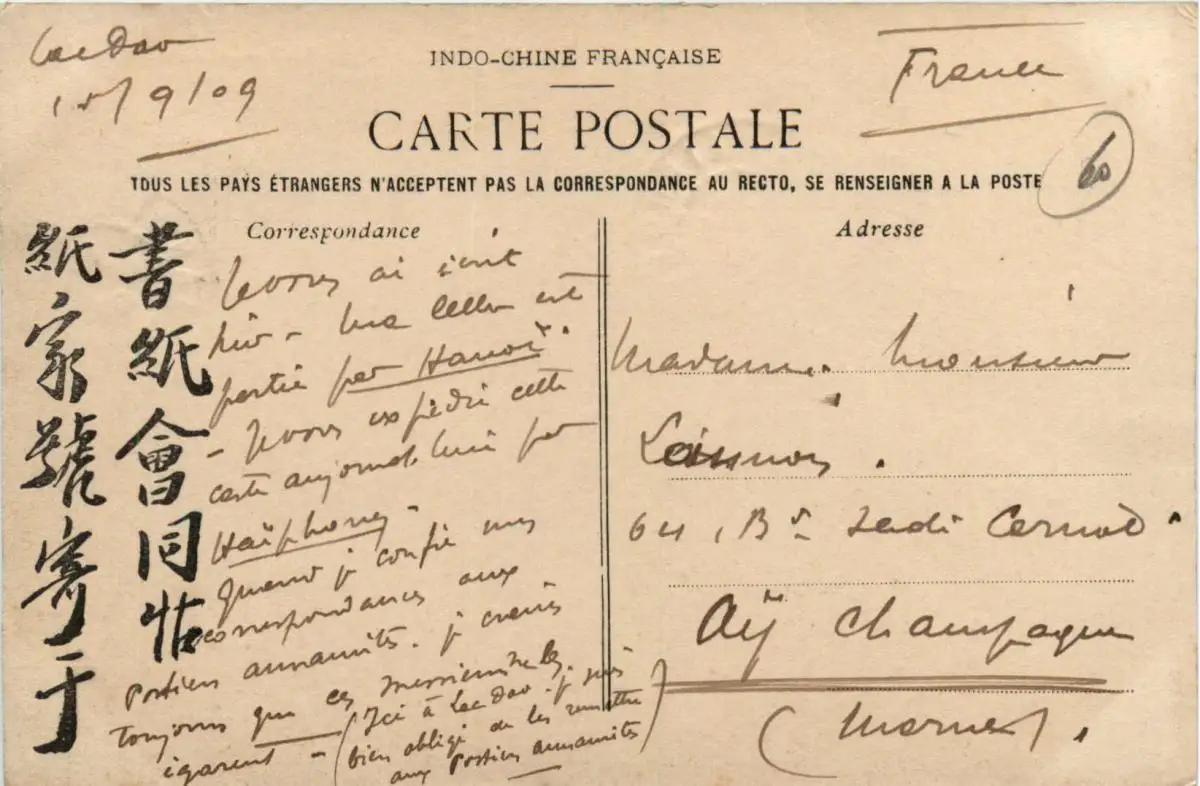 Lacdao
15/9/09
INDO-CHINE FRANÇAISE
CARTE POSTALE
TOUS LES PAYS ÉTRANGERS N'ACCEPTENT PAS LA CORRESPONDANCE AU RECTO, SE RENSEIGNER A LA POSTE
France
60
Correspondance
書紙會同帖
紙家號寄于
Je vous ai écrit
hier - Ma lettre est
partie par Hanoï.
- Je vous expédie cette
carte aujourd'hui par
Haïphong.
Quand je confie mes
correspondances aux
postiers annamites. je crains
toujours que ces messieurs les
égarent - (Ici à Lacdao. je suis
bien obligé de les remettre
aux Postiers annamites)
Adresse
Madame. Monsieur
64, Bd Sadi Carnot.
Aÿ Champagne
(Marne).